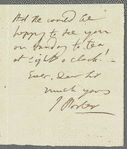 And he would be
happy to see you
on Sunday to tea
at eight o'clock.
Ever, Dear Sir
much yours
J Porter